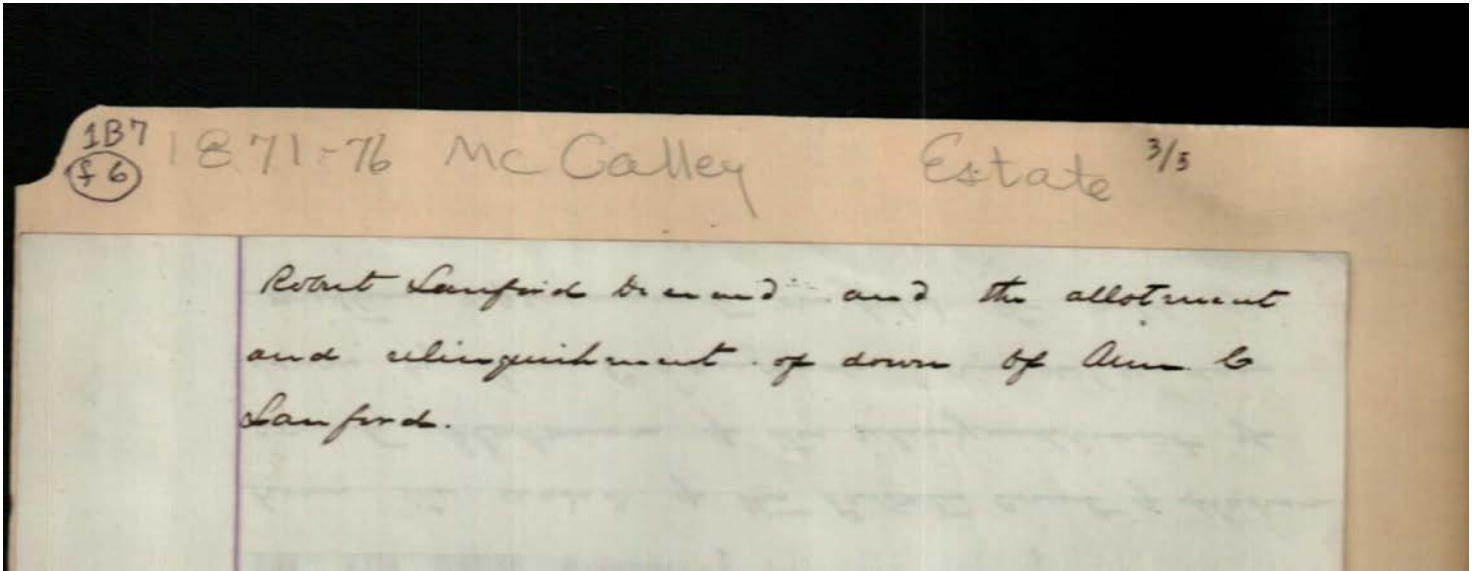 1B7
f 6
1871-76 McCalley Estate 3/5
Robert Lanford and the allotment
and relinquishment of dower of Ann C
Lanford.